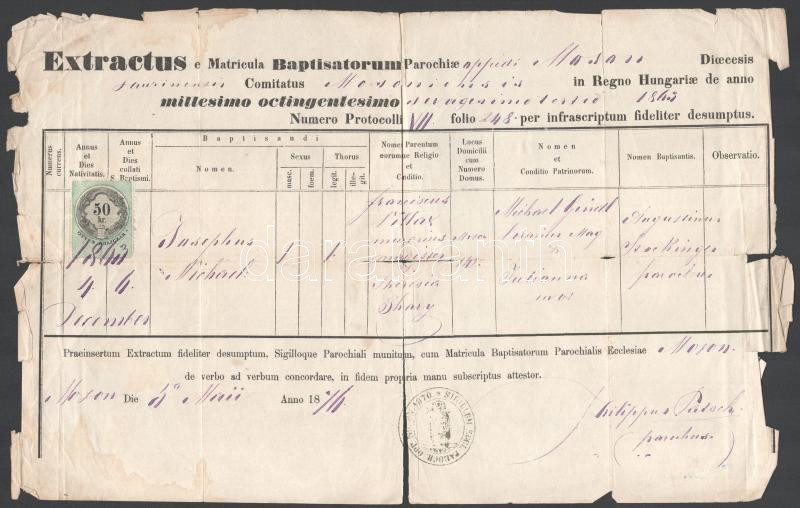 Extractus e Matricula Baptisatorum Parochiæ oppidi Mosan Diœcesis
Jaurinensis Comitatus Mosoniensis in Regno Hungariæ de anno
millesimo octingentesimo sexagesimo tertio 1863
Numero Protocolli VII folio 248. per infrascriptum fideliter desumptus.
Numerus currens.
Annus et Dies Nativitatis.
Annus et Dies collati S. Baptismi.
Baptisandi
Nomen.
Sexus
masc.
foem.
Thorus
legit.
ille-git.
Nomen Parentum eorumque Religio et Conditio.
Locus Domicilii cum Numero Domus.
Nomen et Conditio Patrinorum.
Nomen Baptisantis.
Observatio.
50 kr.
1863
4 6.
December
Josephus
Michael
1
1.
Franciscus
Theresia
Michael
Julianna
uxor
Augustinus
parochus
darabanth
Praeinsertum Extractum fideliter desumptum, Sigilloque Parochiali munitum, cum Matricula Baptisatorum Parochialis Ecclesiae Moson.
de verbo ad verbum concordare, in fidem propria manu subscriptus attestor.
Moson Die Maii Anno 1876
Philippus
parochus